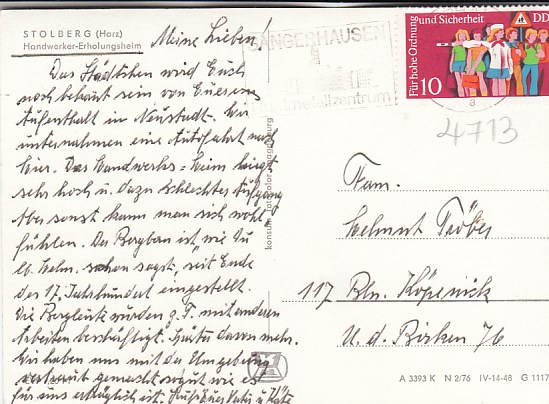 STOLBERG (Harz)
Handwerker-Erholungsheim
Meine Lieben!
Das Städtchen wird Euch
noch bekannt sein von Eurem
Aufenthalt in Neustadt. Wir
unternahmen eine Autofahrt nach
hier. Das Handwerks-Heim liegt
sehr hoch u. dazu schlechter Aufgang
Aber sonst kann man sich wohl
fühlen. Der Bergbau ist, wie Du
lb. Helm. schon sagst, seit Ende
des 17. Jahrhundert eingestellt.
Die Bergleute würden z. T. mit anderen
Arbeiten beschäftigt. Später davon mehr.
Wir haben uns mit der Umgebung
vertraut gemacht so gut wie es
für uns möglich ist. u. Käte
konsum
SANGERHAUSEN
und Sicherheit DDR
Für hohe Ordnung
10
a
4713
Fam.
Helmut Tröber
117 Bln. Köpenick
U. d. Birken 76
A 3393 K N 2/76 IV-14-48 G 1117